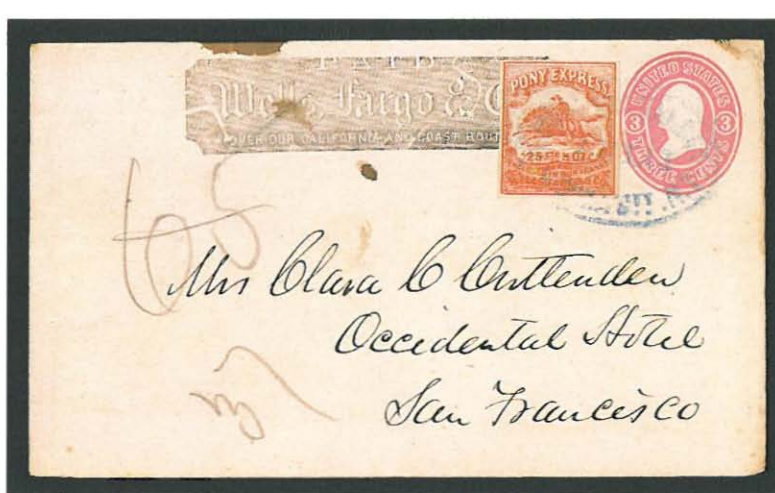 PAID
Wells, Fargo & C
OVER OUR CALIFORNIA AND COAST ROUT
PONY EXPRESS
UNITED STATES
3 3
THREE CENTS
Mrs Clara C Cruttenden
Occidental Hotel
San Francisco